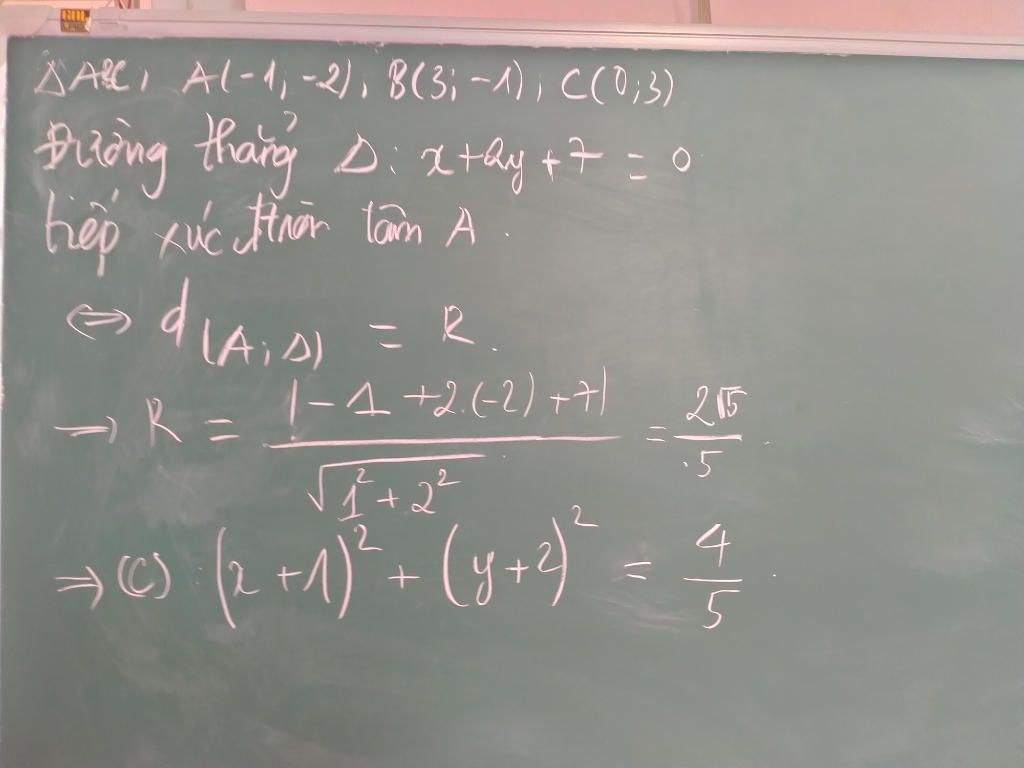 ΔABC, A(-1; -2), B(3; -1), C(0;3)
Đường thẳng Δ: x+2y+7 = 0
tiếp xúc đtròn tâm A.
⇔ d(A; Δ) = R.
→ R = |-1 +2.(-2) +7| / √(1² + 2²) = 2√5 / 5.
⇒ (C): (x+1)² + (y+2)² = 4/5.